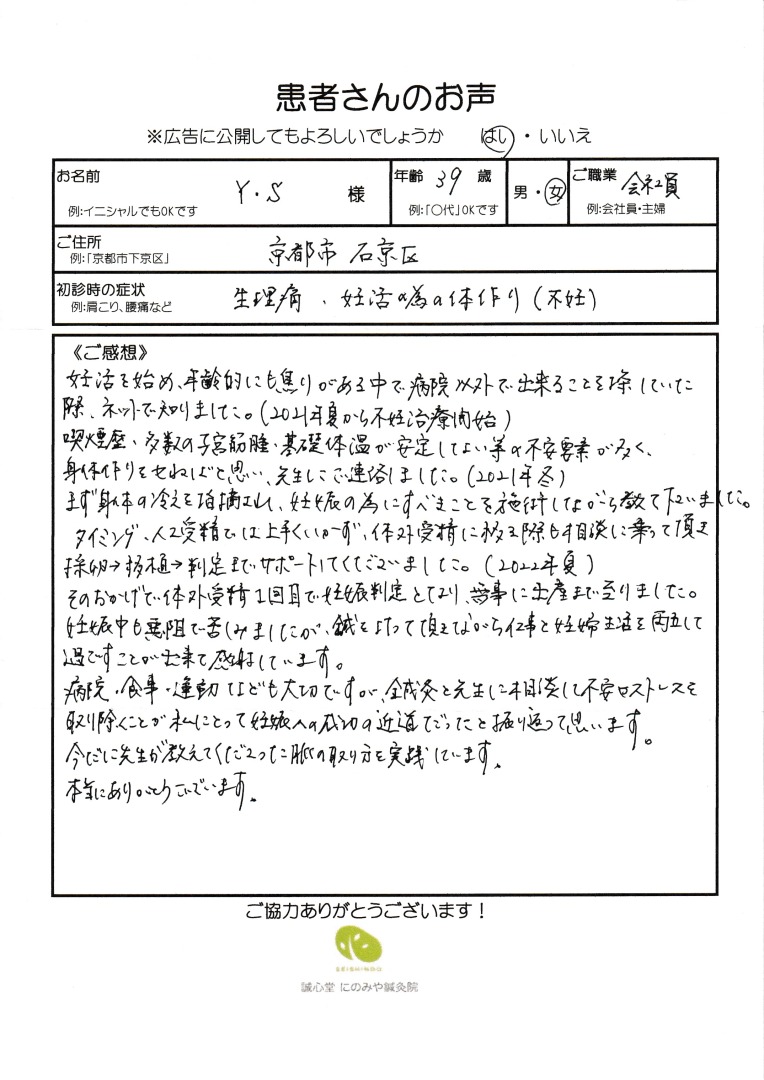 患者さんのお声
※広告に公開してもよろしいでしょうか はい・いいえ
お名前 Y.S 様
例:イニシャルでもOKです
年齢 39 歳
例:「〇代」OKです
男・女
ご職業 会社員
例:会社員・主婦
ご住所 京都市 右京区
例:「京都市下京区」
初診時の症状 生理痛、妊活の為の体作り(不妊)
例:肩こり、腰痛など
《ご感想》
妊活を始め、年齢的にも焦りがある中で病院以外で出来ることを探していた
際、ネットで知りました。(2021年夏から不妊治療開始)
喫煙歴・多数の子宮筋腫・基礎体温が安定しない等の不安要素が多く、
身体作りをせねばと思い、先生にご連絡しました。(2021年冬)
まず身体の冷えを指摘され、妊娠の為にすべきことを施術しながら教えて下さいました。
タイミング、人工受精では上手くいかず、体外受精に移る際も相談に乗って頂き
採卵→移植→判定までサポートしてくださいました。(2022年夏)
そのおかげで体外受精1回目で妊娠判定となり、無事に出産まで至りました。
妊娠中も悪阻で苦しみましたが、鍼をうって頂きながら仕事と妊婦生活を両立して
過ごすことが出来て感謝しています。
病院・食事・運動なども大切ですが、鍼灸と先生に相談して不安やストレスを
取り除くことが私にとって妊娠への成功の近道だったと振り返って思います。
今だに先生が教えてくださった脈の取り方を実践しています。
本当にありがとうございます。
ご協力ありがとうございます!
SEISHINDO
誠心堂 にのみや鍼灸院